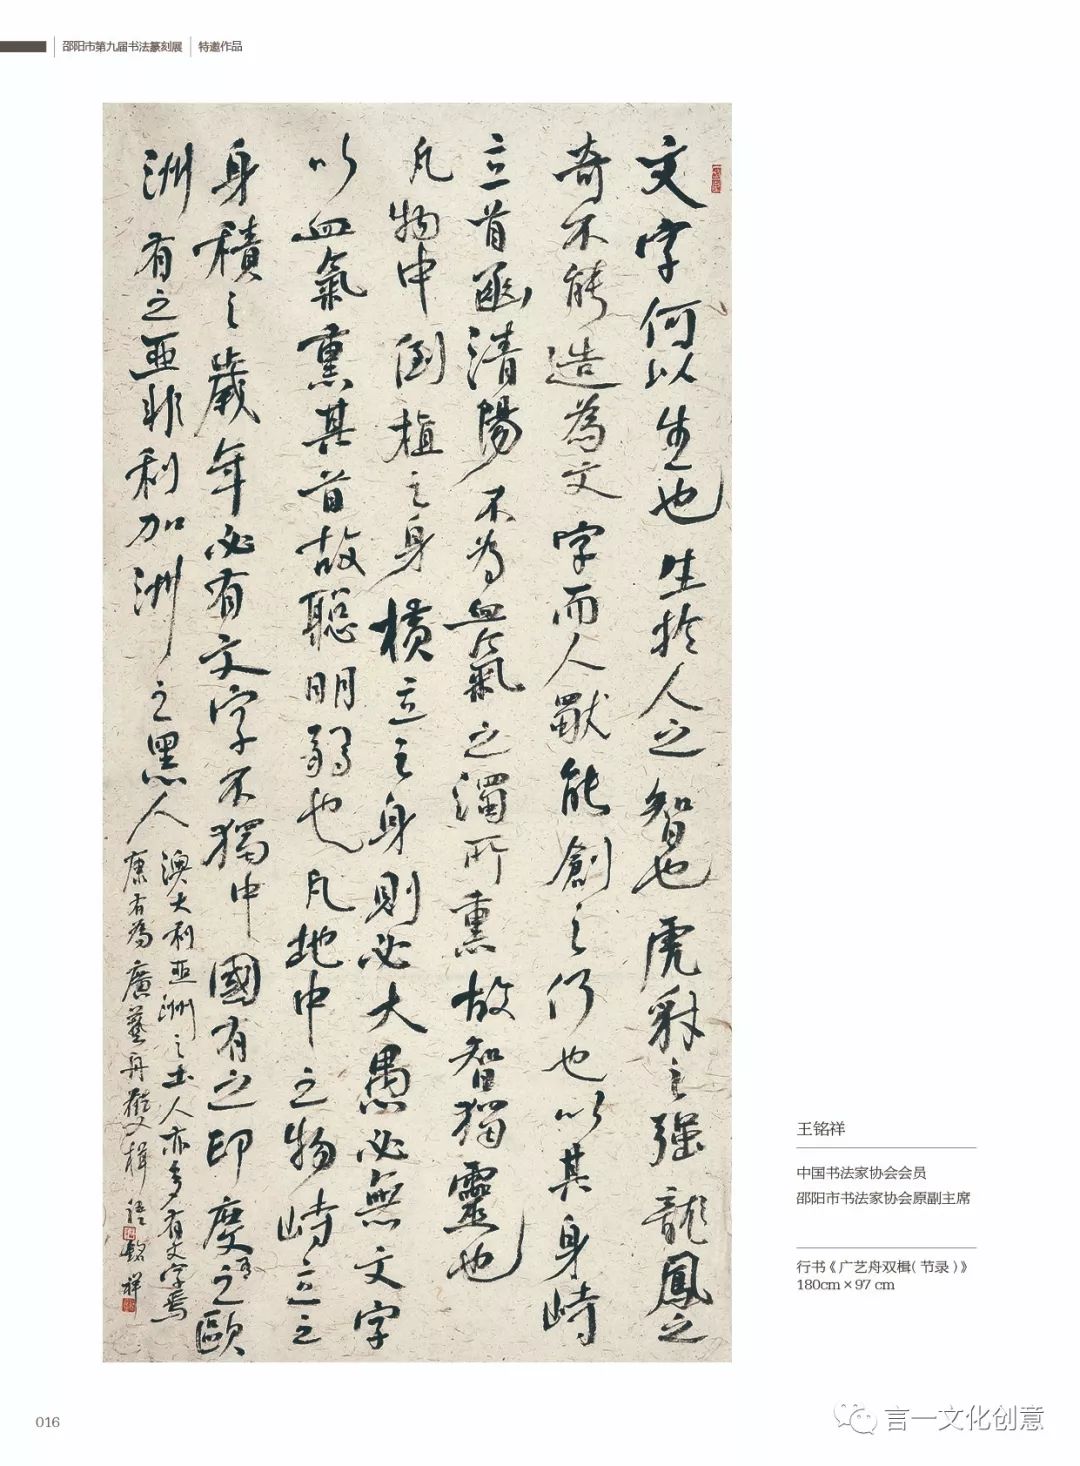 邵阳市第九届书法篆刻展 特邀作品
文字何以生也生於人之智也虎豹之强龍鳳之
奇不能造為文字而人獸能創之何也以其身峙
立首函清陽不為血氣之濁所熏故智獨靈也
凡物中倒植之身橫立之身則必大愚必無文字
以血氣熏其首故聰明弱也凡地中之物峙立之
身積之歲年必有文字不獨中國有之印度有之歐
洲有之亞非利加洲之黑人
澳大利亚洲之土人亦多有文字焉
康有為廣藝舟雙楫語 銘祥
王铭祥
中国书法家协会会员
邵阳市书法家协会原副主席
行书《广艺舟双楫(节录)》
180cm×97 cm
016
言一文化创意